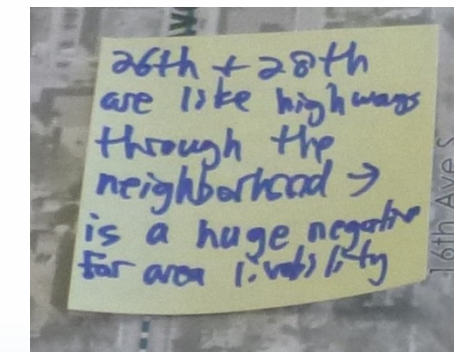 26th + 28th
are like highways
through the
neighborhood →
is a huge negative
for area livability
16th Ave S